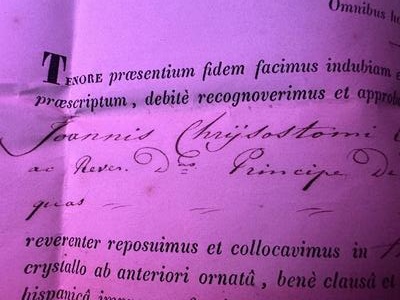 Omnibus
TENORE præsentium fidem facimus indubiam
præscriptum, debitè recognoverimus et
Joannis Chrÿsostomi
ac Rever. Dno Principe De
quas
reverenter reposuimus et collocavimus in
crystallo ab anteriori ornatâ, benè clausâ et
hispanicâ